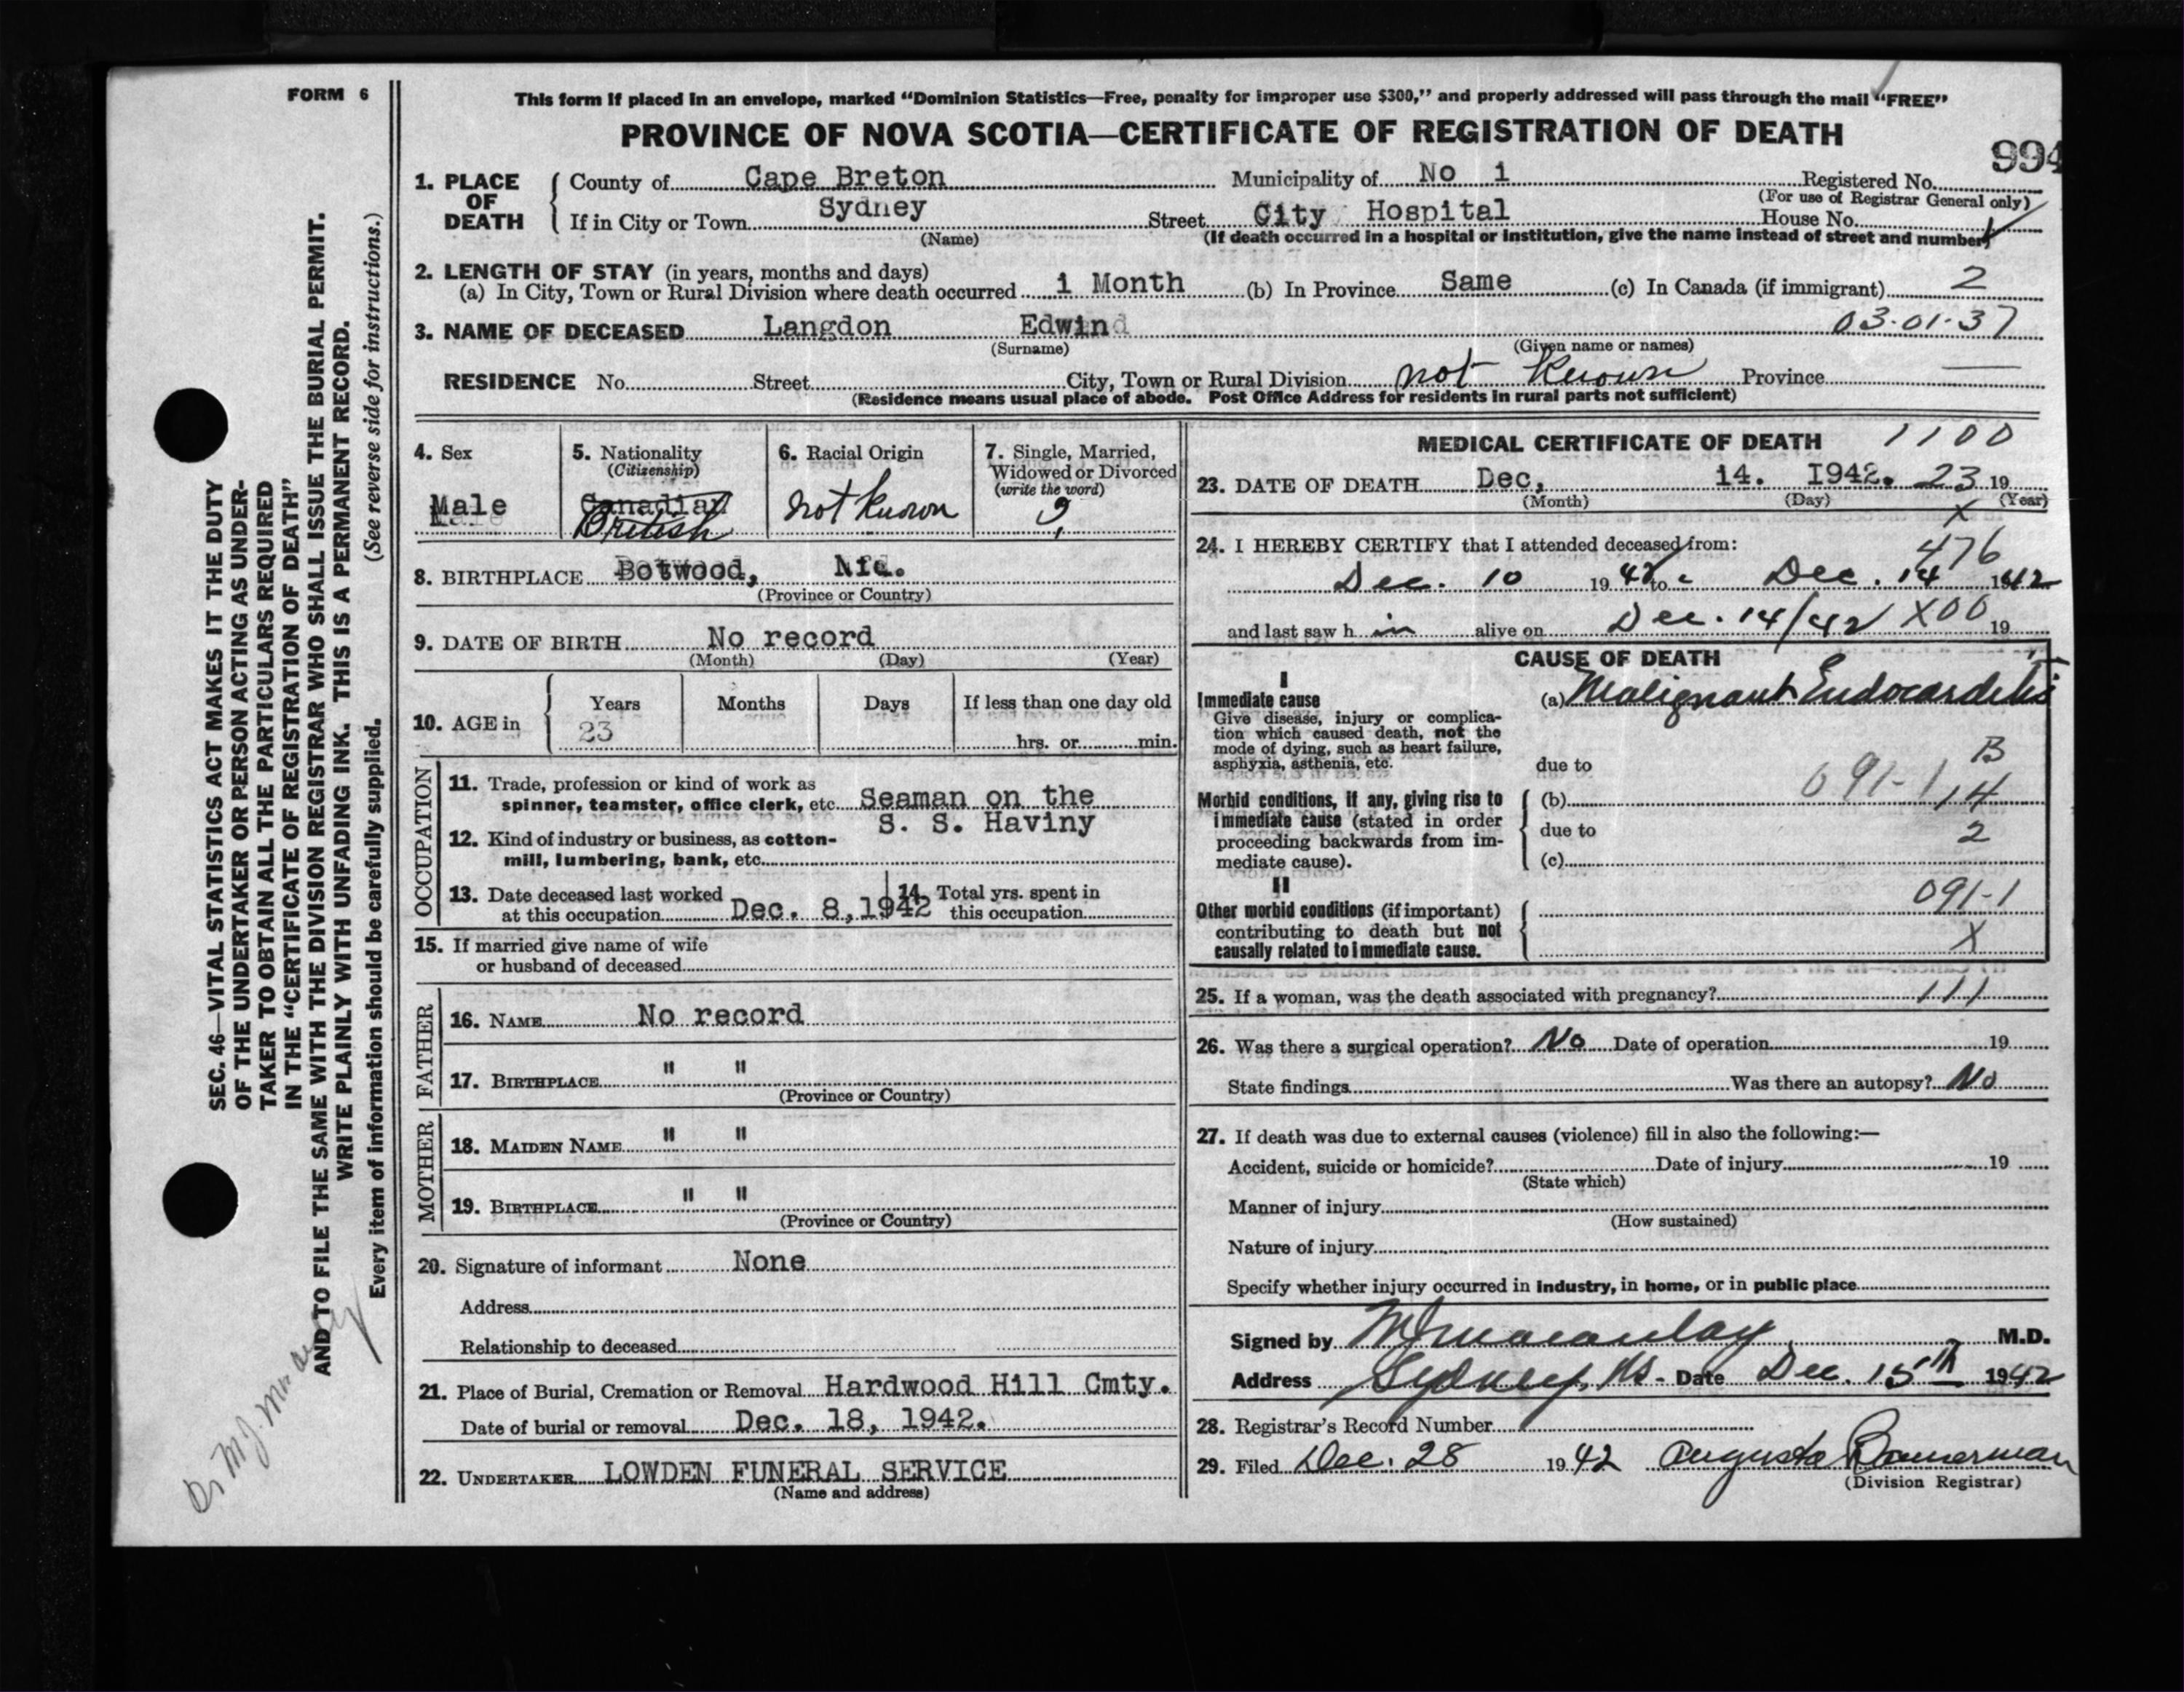 FORM 6
This form if placed in an envelope, marked "Dominion Statistics—Free, penalty for improper use $300," and properly addressed will pass through the mail "FREE"
PROVINCE OF NOVA SCOTIA—CERTIFICATE OF REGISTRATION OF DEATH
994
1. PLACE OF DEATH { County of Cape Breton Municipality of No 1 Registered No.
(For use of Registrar General only)
If in City or Town Sydney Street City Hospital House No.
(Name) (If death occurred in a hospital or institution, give the name instead of street and number)
2. LENGTH OF STAY (in years, months and days)
(a) In City, Town or Rural Division where death occurred 1 Month (b) In Province Same (c) In Canada (if immigrant) 2
3. NAME OF DECEASED Langdon Edwind 03-01-37
(Surname) (Given name or names)
RESIDENCE No. Street City, Town or Rural Division not known Province —
(Residence means usual place of abode. Post Office Address for residents in rural parts not sufficient)
4. Sex
Male
5. Nationality
(Citizenship)
Canadian
British
6. Racial Origin
not known
7. Single, Married,
Widowed or Divorced
(write the word)
?
8. BIRTHPLACE Botwood, Nfd.
(Province or Country)
9. DATE OF BIRTH No record
(Month) (Day) (Year)
10. AGE in { Years Months Days If less than one day old
23 hrs. or min.
OCCUPATION
11. Trade, profession or kind of work as
spinner, teamster, office clerk, etc. Seaman on the
S. S. Haviny
12. Kind of industry or business, as cotton-
mill, lumbering, bank, etc.
13. Date deceased last worked
at this occupation Dec. 8, 1942
14. Total yrs. spent in
this occupation
15. If married give name of wife
or husband of deceased
FATHER
16. NAME No record
17. BIRTHPLACE " "
(Province or Country)
MOTHER
18. MAIDEN NAME " "
19. BIRTHPLACE " "
(Province or Country)
20. Signature of informant None
Address
Relationship to deceased
21. Place of Burial, Cremation or Removal Hardwood Hill Cmty.
Date of burial or removal Dec. 18, 1942.
22. UNDERTAKER LOWDEN FUNERAL SERVICE
(Name and address)
MEDICAL CERTIFICATE OF DEATH 1100
23. DATE OF DEATH Dec, 14. I942. 23 19
(Month) (Day) (Year)
X
24. I HEREBY CERTIFY that I attended deceased from:
476
Dec. 10 1942 to Dec. 14 1942
and last saw h im alive on Dec. 14/42 X00 19
CAUSE OF DEATH
I
Immediate cause
Give disease, injury or complica-
tion which caused death, not the
mode of dying, such as heart failure,
asphyxia, asthenia, etc.
(a) Malignant Endocarditis
due to B
091-1
Morbid conditions, if any, giving rise to
immediate cause (stated in order
proceeding backwards from im-
mediate cause).
(b) 14
due to 2
(c)
II
Other morbid conditions (if important)
contributing to death but not
causally related to immediate cause.
091-1
X
25. If a woman, was the death associated with pregnancy? 111
26. Was there a surgical operation? No Date of operation 19
State findings Was there an autopsy? No
27. If death was due to external causes (violence) fill in also the following:—
Accident, suicide or homicide? Date of injury 19
(State which)
Manner of injury
(How sustained)
Nature of injury
Specify whether injury occurred in industry, in home, or in public place
Signed by M J Macaulay M.D.
Address Sydney, NS - Date Dec. 15th 1942
28. Registrar's Record Number
29. Filed Dec. 28 1942 Augusta Bannerman
(Division Registrar)
SEC. 46—VITAL STATISTICS ACT MAKES IT THE DUTY
OF THE UNDERTAKER OR PERSON ACTING AS UNDER-
TAKER TO OBTAIN ALL THE PARTICULARS REQUIRED
IN THE "CERTIFICATE OF REGISTRATION OF DEATH"
AND TO FILE THE SAME WITH THE DIVISION REGISTRAR WHO SHALL ISSUE THE BURIAL PERMIT.
WRITE PLAINLY WITH UNFADING INK. THIS IS A PERMANENT RECORD.
Every item of information should be carefully supplied. (See reverse side for instructions.)
Dr M.J.